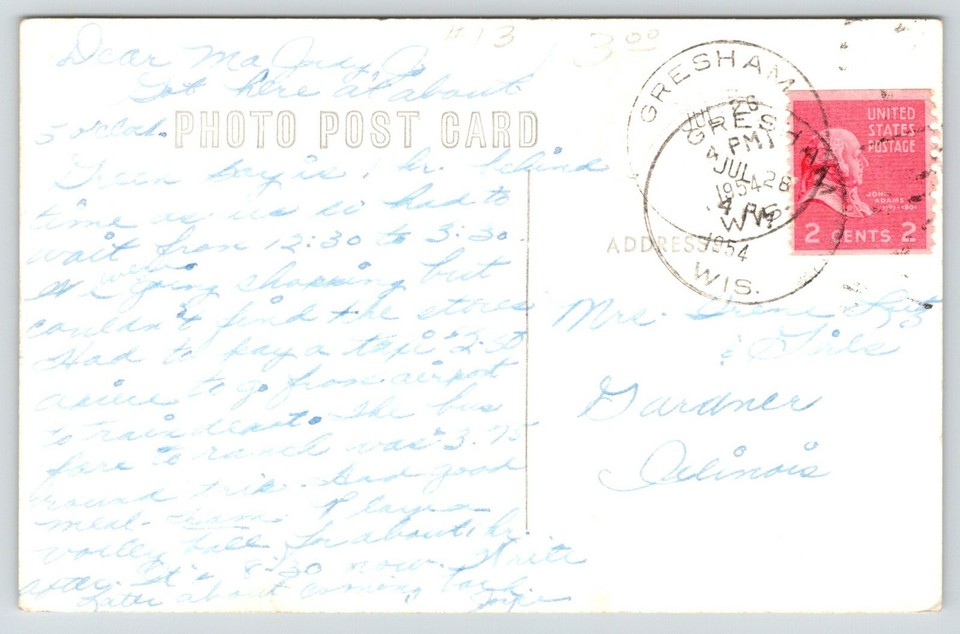 #13 3.00
Dear Ma, Judy,
Got here at about
5 o'clock.
PHOTO POST CARD
Green bay is 1 hr. behind
time as us so had to
wait from 12:30 to 3:30
We were going shopping but
couldn't find the stores
Had to pay a taxi 2.50
apiece to go from airport
to train depot. The bus
fare to ranch was 3.75
round trip. Had good
meal - ham. Playing
volley ball for about 1 hr.
after. It's 8:30 now. Write
Later about coming back
GRESHAM
JUL 26
4 PM
1954
WIS.
GRESHAM
JUL 28
4 PM
1954
WIS.
UNITED
STATES
POSTAGE
JOHN
ADAMS
2 CENTS 2
ADDRESS
Mrs. Irene
&
Gardner
Illinois